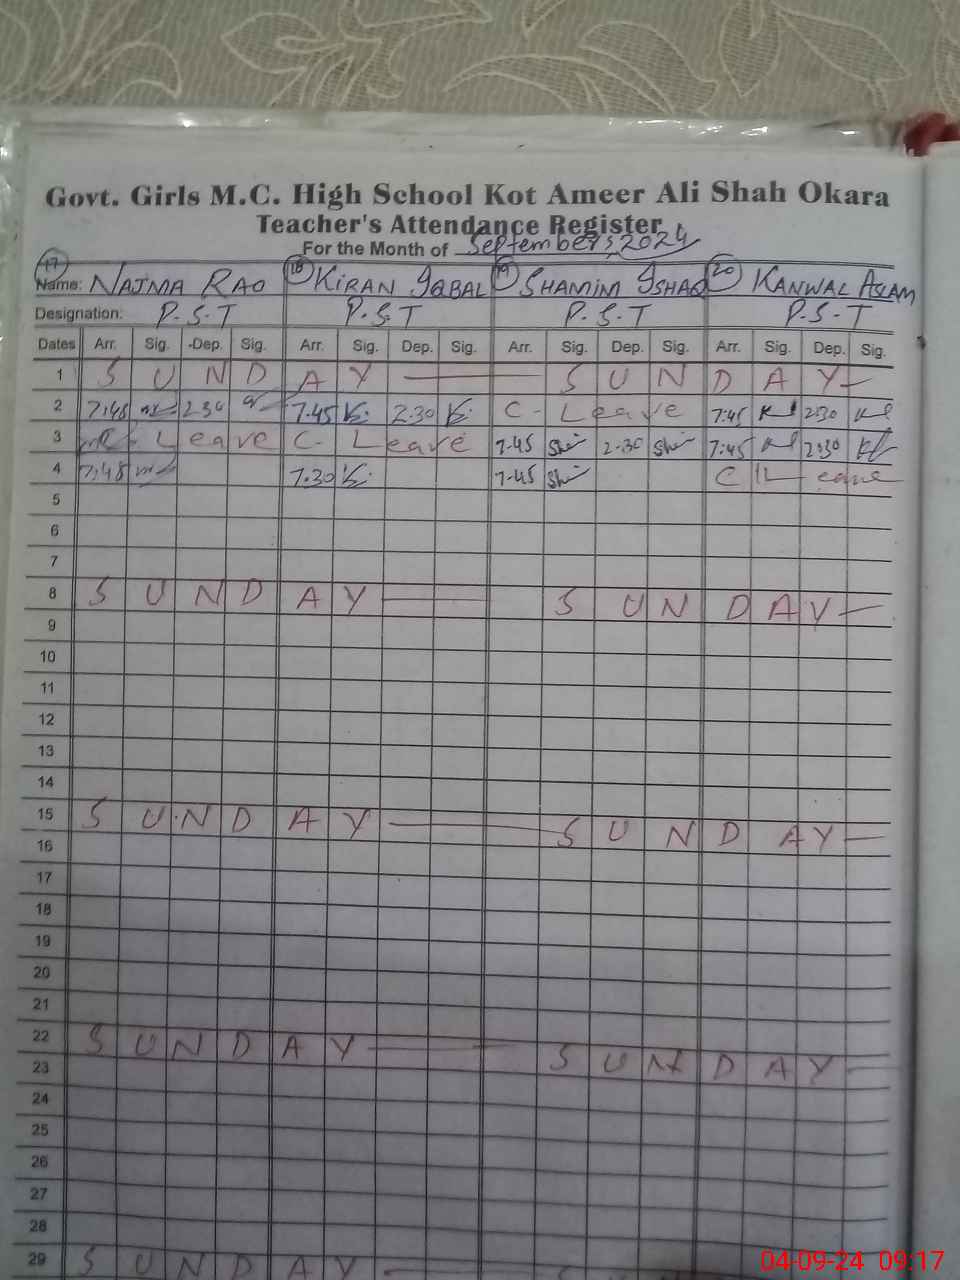 Govt. Girls M.C. High School Kot Ameer Ali Shah Okara
Teacher's Attendance Register
For the Month of September, 2024
17 18 19 20
Name: NAJMA RAO KIRAN IQBAL SHAMIM ISHAQ KANWAL ASLAM
Designation: P.S.T P.S.T P.S.T P.S-T
Dates Arr. Sig. -Dep. Sig. Arr. Sig. Dep. Sig. Arr. Sig. Dep. Sig. Arr. Sig. Dep. Sig.
1 S U N D A Y — S U N D A Y —
2 7:45 2.30 7.45 K. 2.30 K. C - Leave 7:45 2:30
3 C Leave C- Leave 7.45 Shi 2:30 Shi 7:45 2:30
4 7:45 7.30 K. 7.45 Shi C L eave
5
6
7
8 S U N D A Y — S U N D A Y —
9
10
11
12
13
14
15 S U N D A Y — S U N D A Y —
16
17
18
19
20
21
22 S U N D A Y — S U N D A Y —
23
24
25
26
27
28
29 S U N D A Y —
04-09-24 09:17